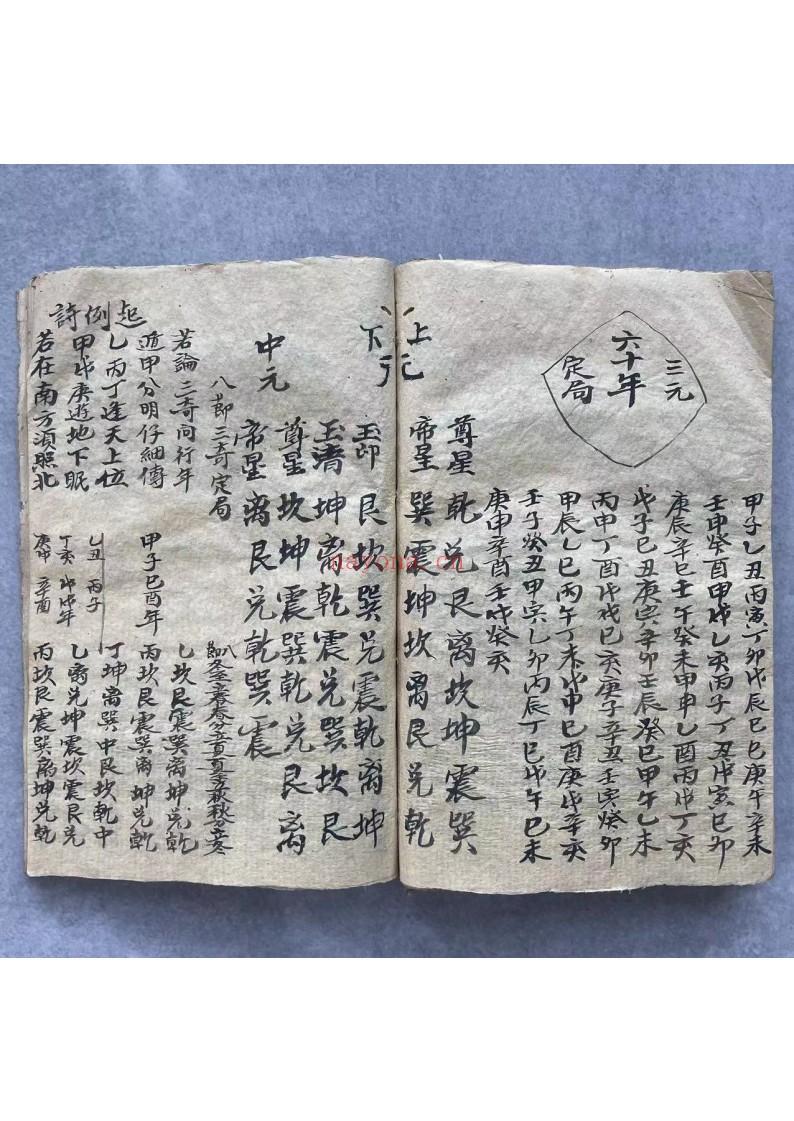 三元
六十年
定局
甲子乙丑丙寅丁卯戊辰己巳庚午辛未
壬申癸酉甲戌乙亥丙子丁丑戊寅己卯
庚辰辛巳壬午癸未甲申乙酉丙戌丁亥
戊子己丑庚寅辛卯壬辰癸巳甲午乙未
丙申丁酉戊戌己亥庚子辛丑壬寅癸卯
甲辰乙巳丙午丁未戊申己酉庚戌辛亥
壬子癸丑甲寅乙卯丙辰丁巳戊午己未
庚申辛酉壬戌癸亥
上元
尊星 乾兑艮离坎坤震巽
帝星 巽震坤坎离艮兑乾
下元
玉印 艮坎巽兑震乾离坤
玉清 坤离乾震兑巽坎艮
中元
尊星坎坤震巽乾兑艮离
帝星离艮兑乾巽震
八节三奇定局
八
冬至立春春分立夏夏至秋秋分立冬
起例詩
若論三奇向行年
遁甲分明仔細傳
乙丙丁逢天上位
甲戊庚遊地下眠
若在南方須照北
甲子己酉年
乙坎艮震巽离坤兑乾
丙坎艮震巽离坤兑乾
丁坤离巽中艮坎乾中
乙丑 丙子
丁亥 戊戌年
庚申 辛酉
乙离兑坤震坎震艮兑
丙坎艮震巽离坤兑乾
nayona.cn